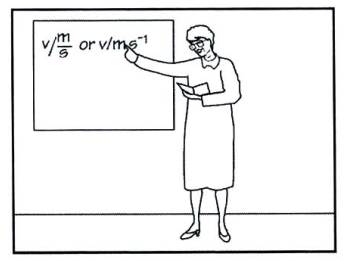 v/m/s or v/ms⁻¹